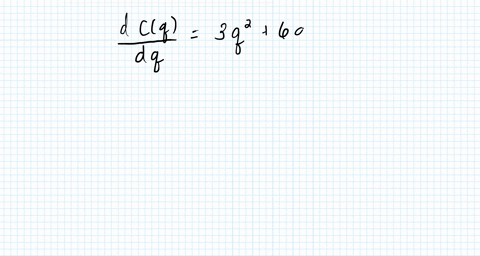 d C(q) / dq = 3q² + 60